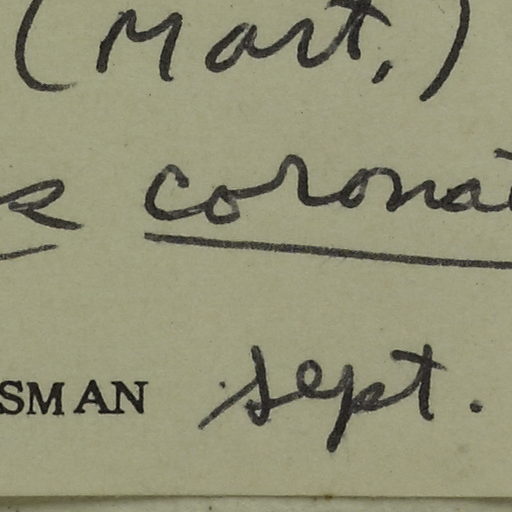 (Mart.)
coronat
SMAN sept.